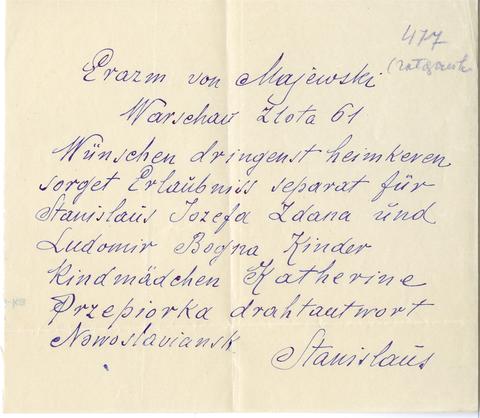 477
Erazm von Majewski
Warschau Zlota 61
Wünschen dringenst heimkeren
sorget Erlaübniss separat für
Stanislaüs Iozefa Zdana ünd
Ludomir Bogna Kinder
kindmädchen Katherine
Przepiorka drahtautwort
Nowoslaviansk
Stanislaüs